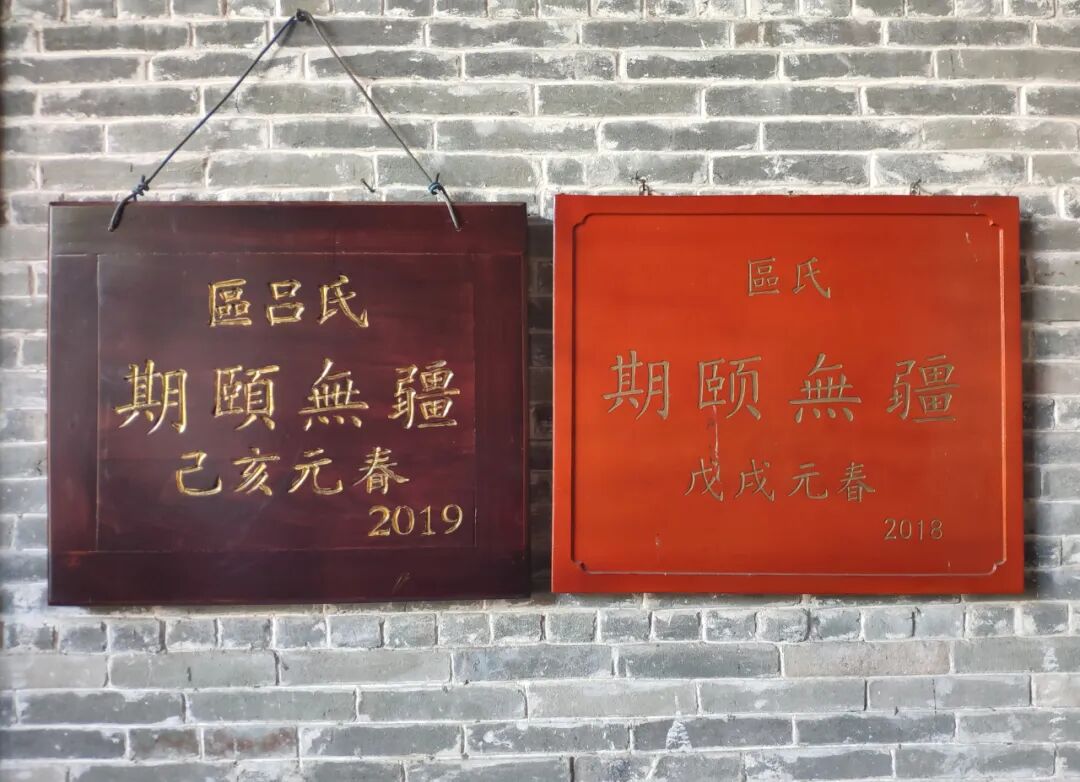 區呂氏
期頤無疆
己亥元春
2019
區氏
期颐無疆
戊戌元春
2018